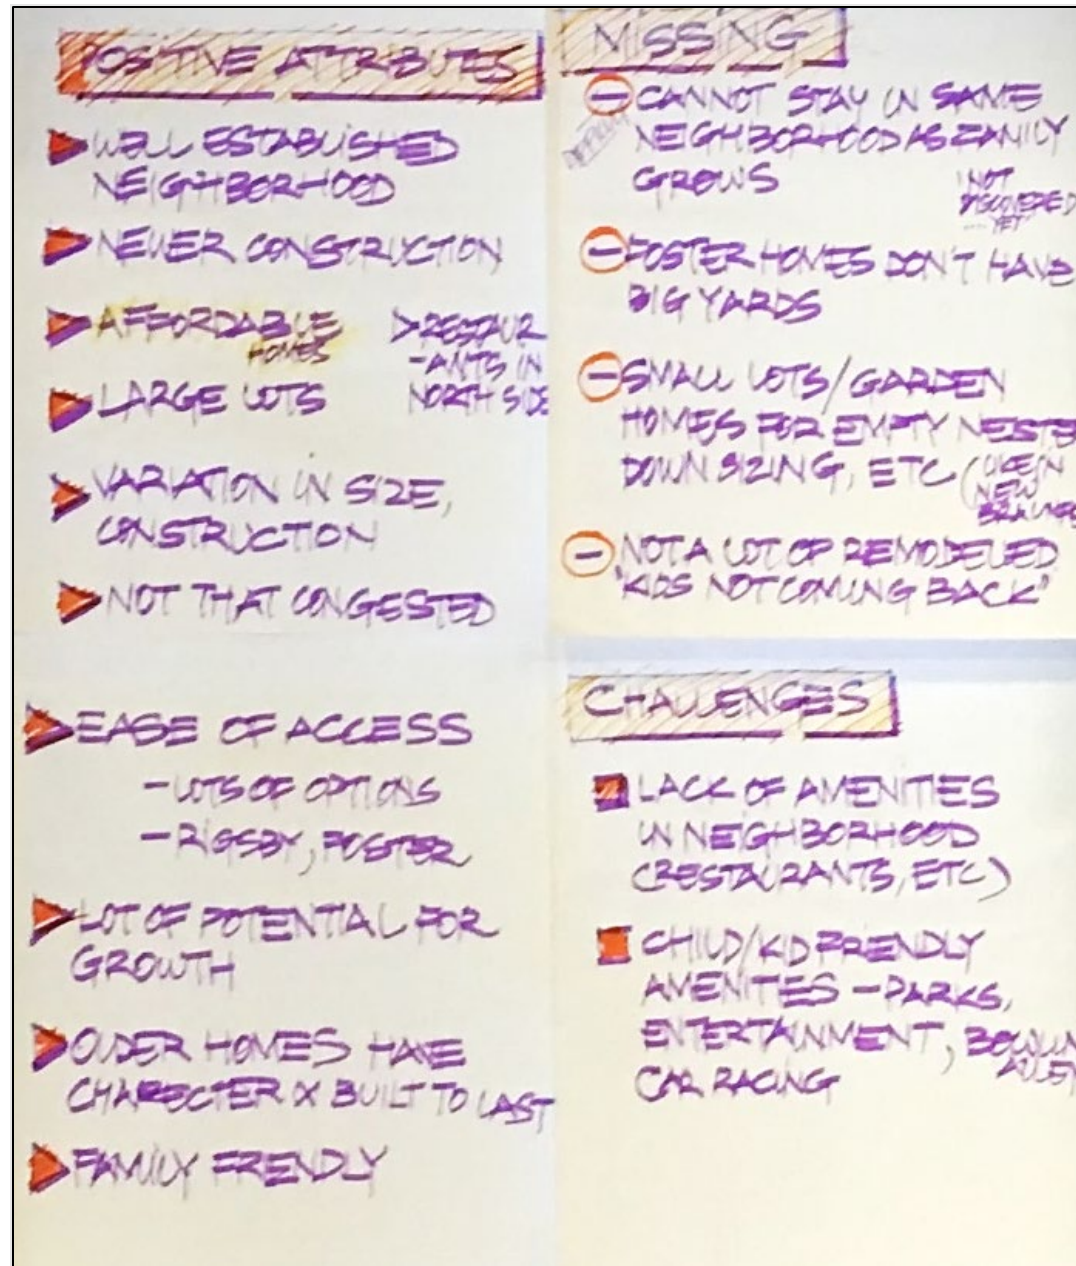 POSITIVE ATTRIBUTES
WELL ESTABLISHED
NEIGHBORHOOD
NEWER CONSTRUCTION
AFFORDABLE
HOMES
>RESTAUR
-ANTS IN
NORTH SIDE
LARGE LOTS
VARIATION IN SIZE,
CONSTRUCTION
NOT THAT CONGESTED
EASE OF ACCESS
- LOTS OF OPTIONS
- RIGSBY, FOSTER
LOT OF POTENTIAL FOR
GROWTH
OLDER HOMES HAVE
CHARECTER & BUILT TO LAST
FAMILY FRIENDLY
MISSING
CANNOT STAY IN SAME
NEIGHBORHOOD AS FAMILY
GROWS
NOT
DISCOVERED
... YET
FOSTER HOMES DON'T HAVE
BIG YARDS
SMALL LOTS/GARDEN
HOMES FOR EMPTY NESTE
DOWN SIZING, ETC (LIKE IN
NEW
BRAUNFE
NOT A LOT OF REMODELED
"KIDS NOT COMING BACK"
CHALLENGES
LACK OF AMENITIES
IN NEIGHBORHOOD
(RESTAURANTS, ETC)
CHILD/KID FRIENDLY
AMENITIES - PARKS,
ENTERTAINMENT, BOWLIN
ALLEY
CAR RACING